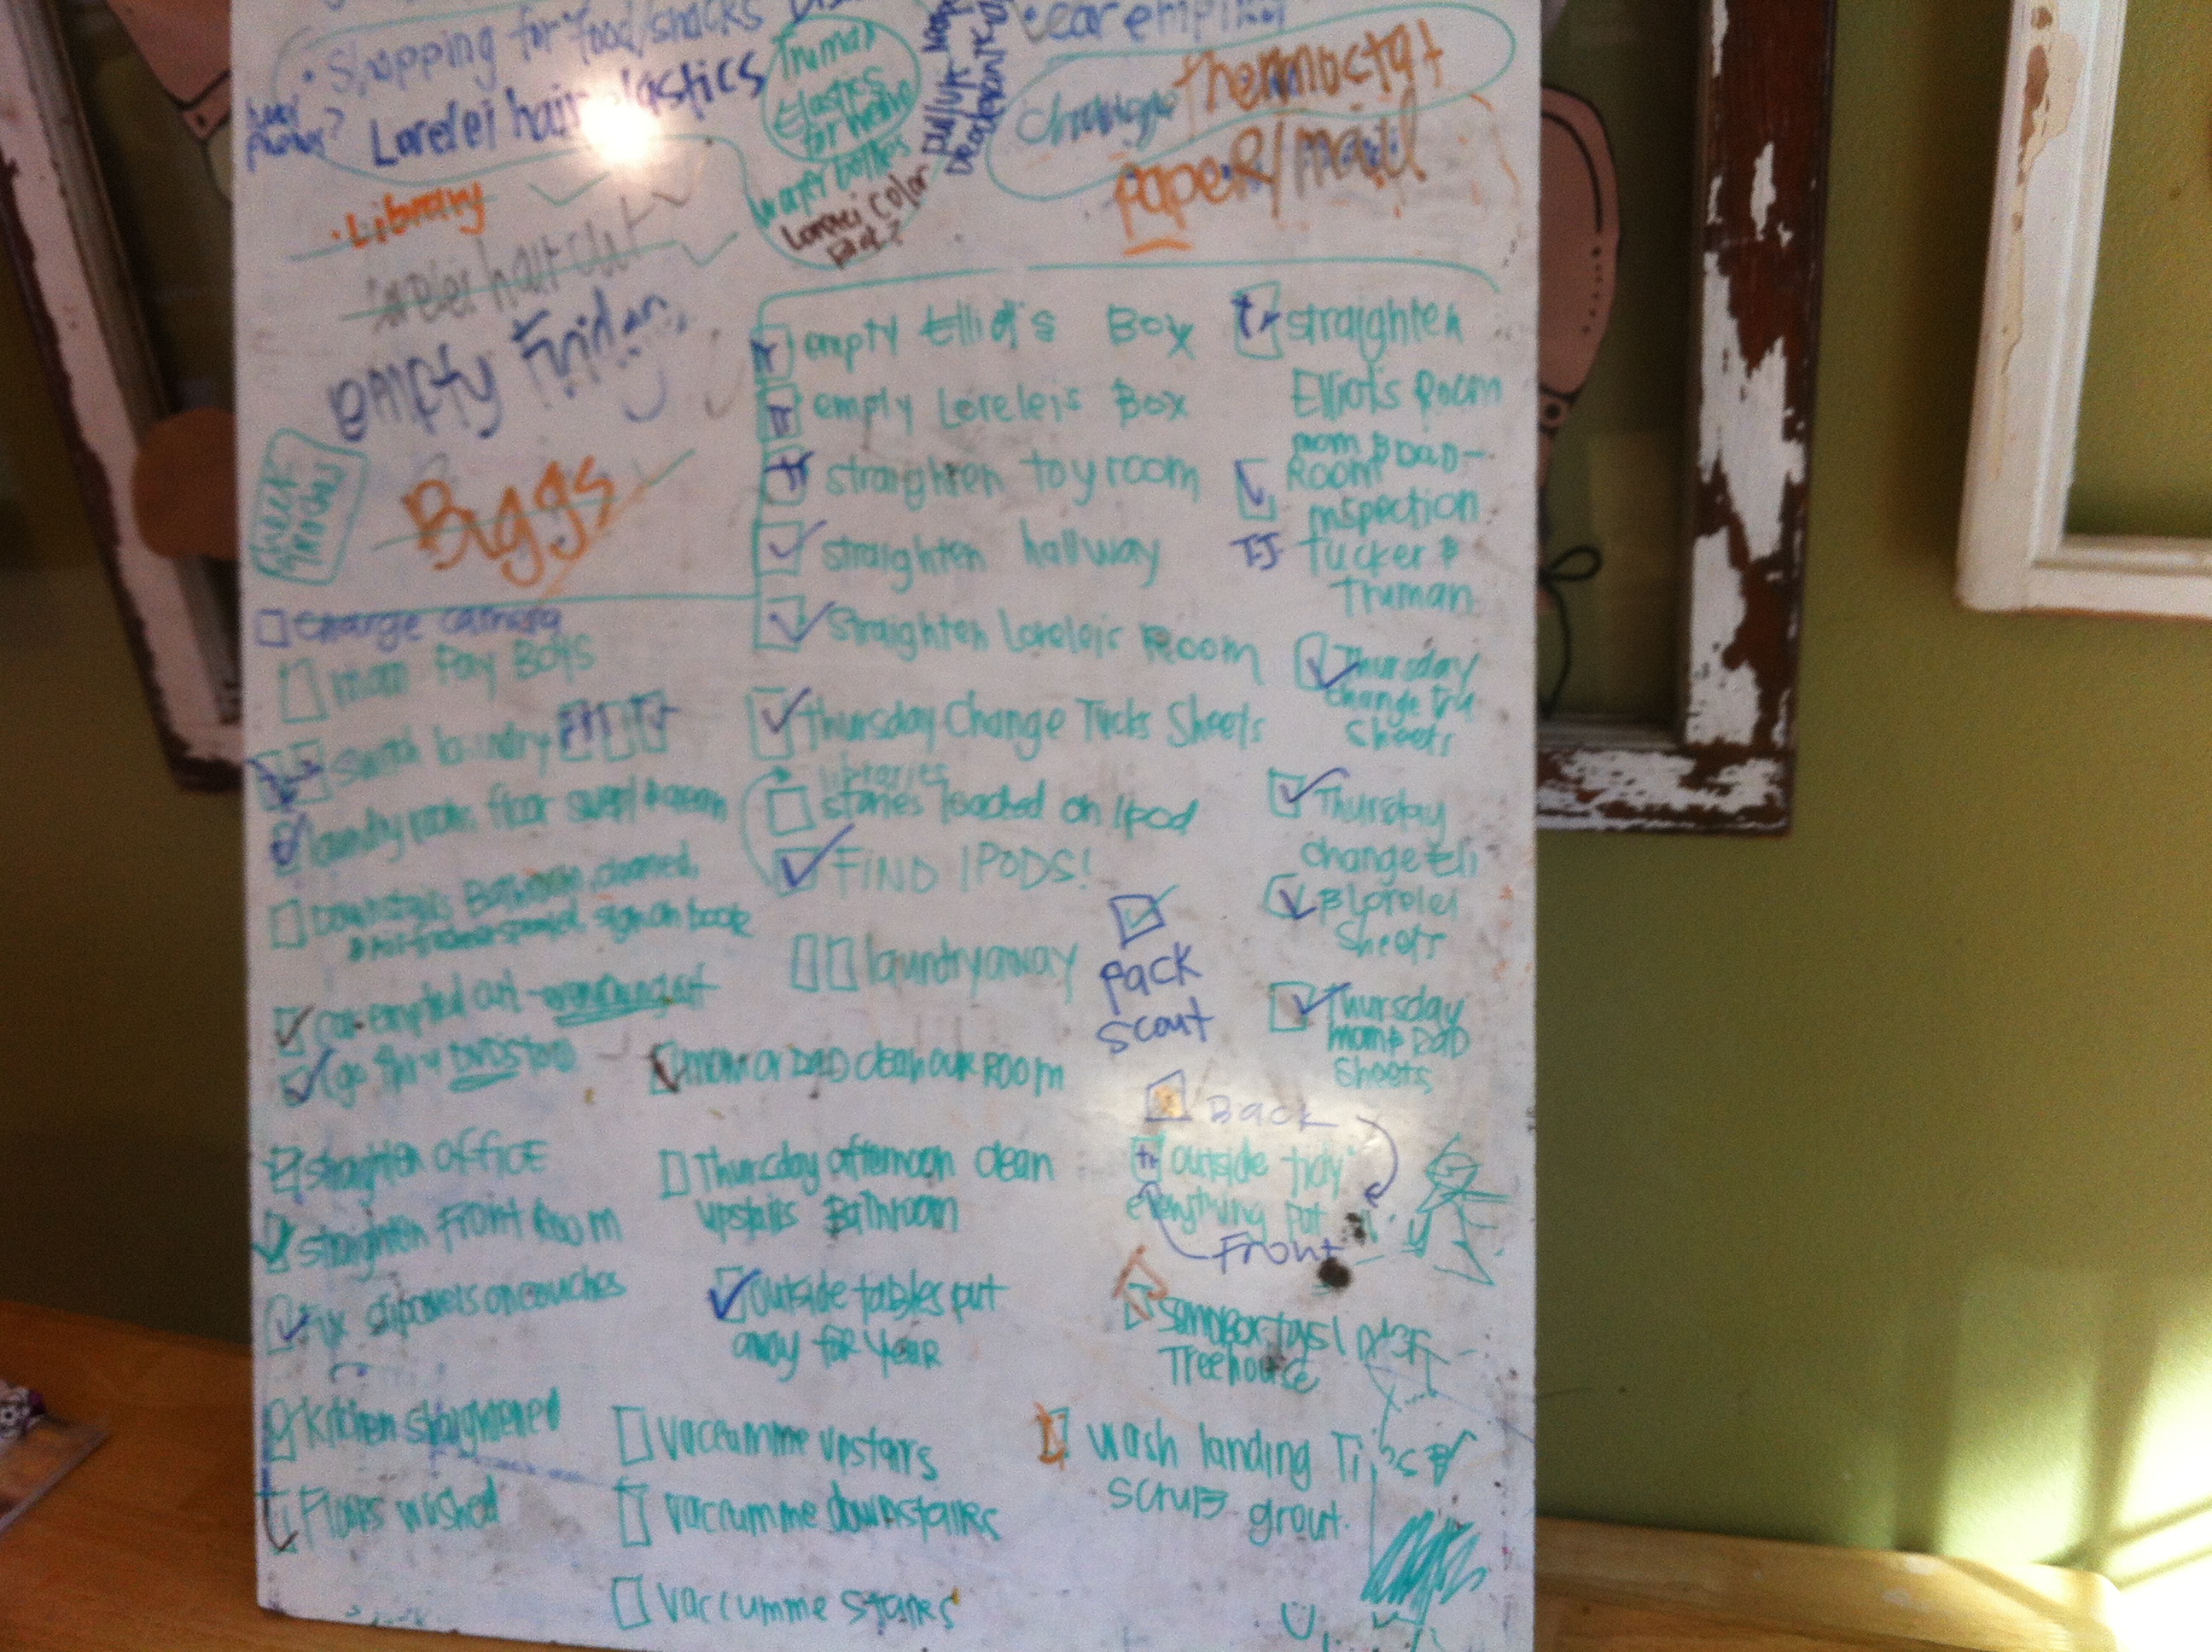 • Shopping for food/snacks
Lorelei hair elastics
Truman
Elastics
for
water bottles
Lorelei color
pull/up
change thermoctat
paper/mail
• Library
Lorelei hair cut
empty Fridge
Biggs
charge camera
mom Pay Boys
laundry
laundry room floor swept
Downstairs Bathroom cleaned,
sign on book
car emptied out
go thru DVDs
straighten OFFICE
straighten Front Room
Fix slipcovers on couches
Kitchen straightened
Floors washed
empty Elliot's Box
empty Loreleis Box
straighten toyroom
straighten hallway
Straighten Loreleis Room
Thursday Change Tucks Sheets
libraries
stories loaded on Ipod
FIND IPODS!
laundry away
mom or DAD clean our ROOM
Thursday afternoon clean
upstairs Bathroom
outside tables put
away for year
vaccumme upstairs
vaccumme downstairs
vaccumme stairs
straighten
Elliots Room
mom & DAD-
Room
inspection
TJ Tucker &
Truman
Thursday
change tru
Sheets
Thursday
change Eli
& Lorelei
Sheets
Pack
Scout
Thursday
mom & DAD
Sheets
Back
outside tidy
everything put
Front
Sandbox toys
Treehouse
wash landing
scrub grout.